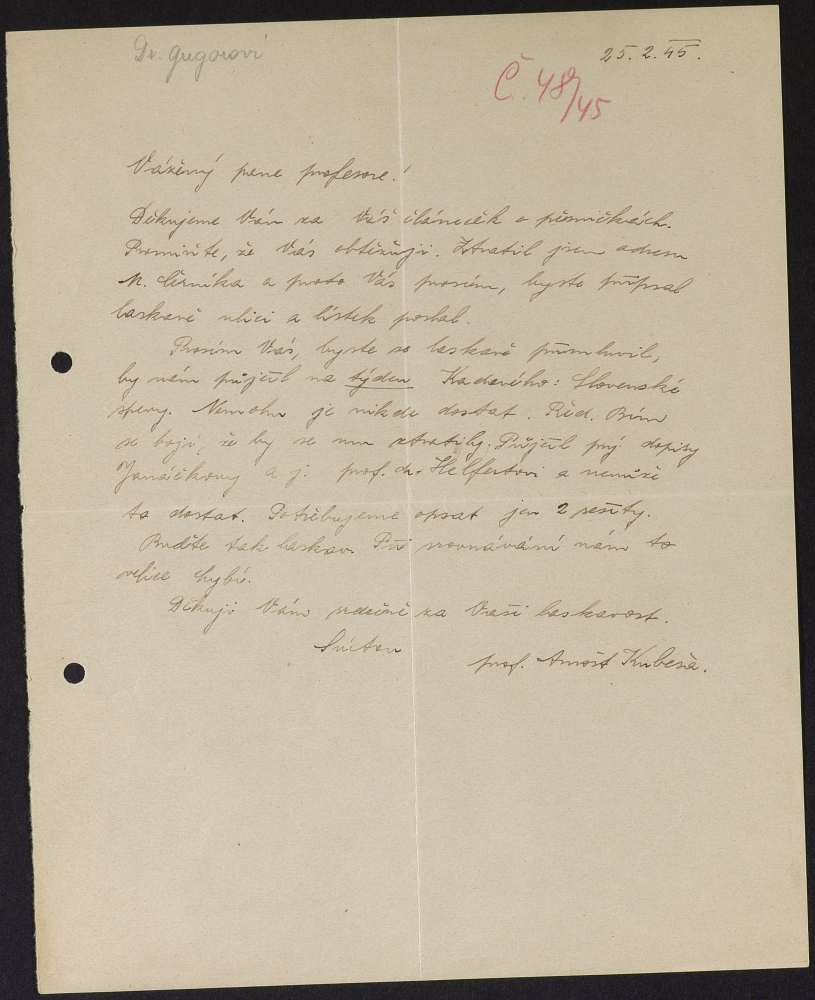 Dr. Gregorovi
25. 2. 45.
Č. 48/45
Vážený pane profesore!
Děkujeme Vám za Váš článeček o písničkách.
Promiňte, že Vás obtěžuji. Ztratil jsem adresu
M. Černíka a proto Vás prosím, byste připsal
laskavě ulici a lístek poslal.
Prosím Vás, byste se laskavě přimluvil,
by nám půjčil na týden Kadavého: Slovenské
spevy. Nemohu je nikde dostat. Řed. Bím
se bojí, že by se mu ztratily. Půjčil prý dopisy
Janáčkovy a j. prof. dr. Helfertovi a nemůže
to dostat. Potřebujeme opsat jen 2 sešity.
Buďte tak laskav. Při srovnávání nám to
velice chybí.
Děkuji Vám srdečně za Vaši laskavost.
prof. Arnošt Kubeša.